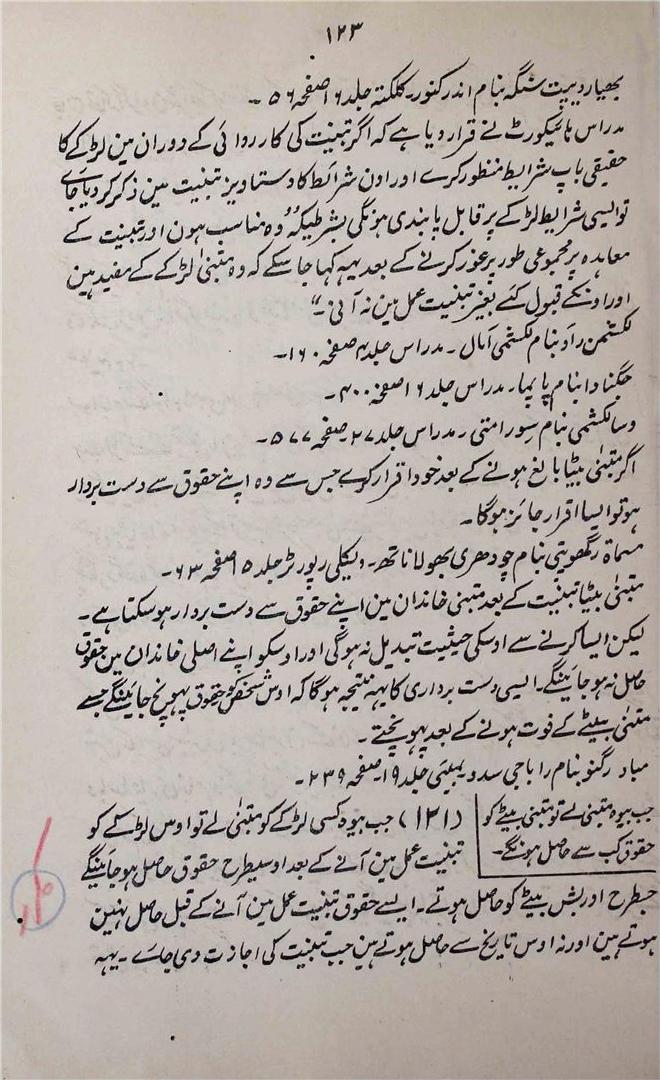 ۱۲۳
بھیار دیپت سنگہ بنام اندر کنور۔ کلکتہ جلد ۱۶ صفحہ ۵۵۶۔
مدراس ہائیکورٹ نے قرار دیا ہے کہ اگر تبنیت کی کارروائی کے دوران مین لڑکے کا
حقیقی باپ شرایط منظور کرے اور اون شرائط کا دستاویز تبنیت مین ذکر کر دیا جاے
تو ایسی شرایط لڑکے پر قابل پابندی ہونگی بشرطیکہ وُہ مناسب ہون اور تبنیت کے
معاہدہ پر مجموعی طور پر غور کرنے کے بعد یہہ کہا جا سکے کہ وہ متبنیٰ لڑکے کے مفید ہین
اور اونکے قبول کئے بغیر تبنیت عمل مین نہ آتی۔"
لکشمن راو بنام لکشمی آمال ۔ مدراس جلد ۴ صفحہ ۱۶۰۔
جگنادا بنام پاپما۔ مدراس جلد ۱۶ صفحہ ۴۰۰۔
وسالکشمی بنام سورامنی ۔ مدراس جلد ۲۷ صفحہ ۵۷۷۔
اگر متبنیٰ بیٹا بالغ ہونے کے بعد خود اقرار کرے جس سے وہ اپنے حقوق سے دست بردار
ہو تو ایسا اقرار جائز ہوگا۔
مسماۃ رگھوبنی بنام چودھری بھولا ناتھ ۔ ویکلی رپورٹر جلد ۱۵ صفحہ ۶۳۔
متبنیٰ بیٹا تبنیت کے بعد متبنی خاندان مین اپنے حقوق سے دست بردار ہو سکتا ہے ۔
لیکن ایسا کرنے سے اوسکی حیثیت تبدیل نہ ہوگی اور اوسکو اپنے اصلی خاندان مین حقوق
حاصل نہ ہو جائینگے۔ ایسی دست برداری کا یہہ نتیجہ ہوگا کہ اوس شخص کو حقوق پہونچ جائینگے جسے
متبنیٰ بیٹے کے فوت ہونے کے بعد پہونچتے ۔
مہادر گنو بنام رایاجی سدو بمبئی جلد ۱۹ صفحہ ۲۳۹۔
جب بیوہ متبنی لے تو متبنی بیٹے کو
حقوق کب سے حاصل ہونگے۔
(۱۲۱) جب بیوہ کسی لڑکے کو متبنیٰ لے تو اوس لڑکے کو
تبنیت عمل مین آنے کے بعد اوسیطرح حقوق حاصل ہو جائینگے
جسطرح اوریش بیٹے کو حاصل ہوتے ۔ ایسے حقوق تبنیت عمل مین آنے کے قبل حاصل نہین
ہوتے ہین اور نہ اوس تاریخ سے حاصل ہوتے ہین جب تبنیت کی اجازت دی جاے ۔ یہہ